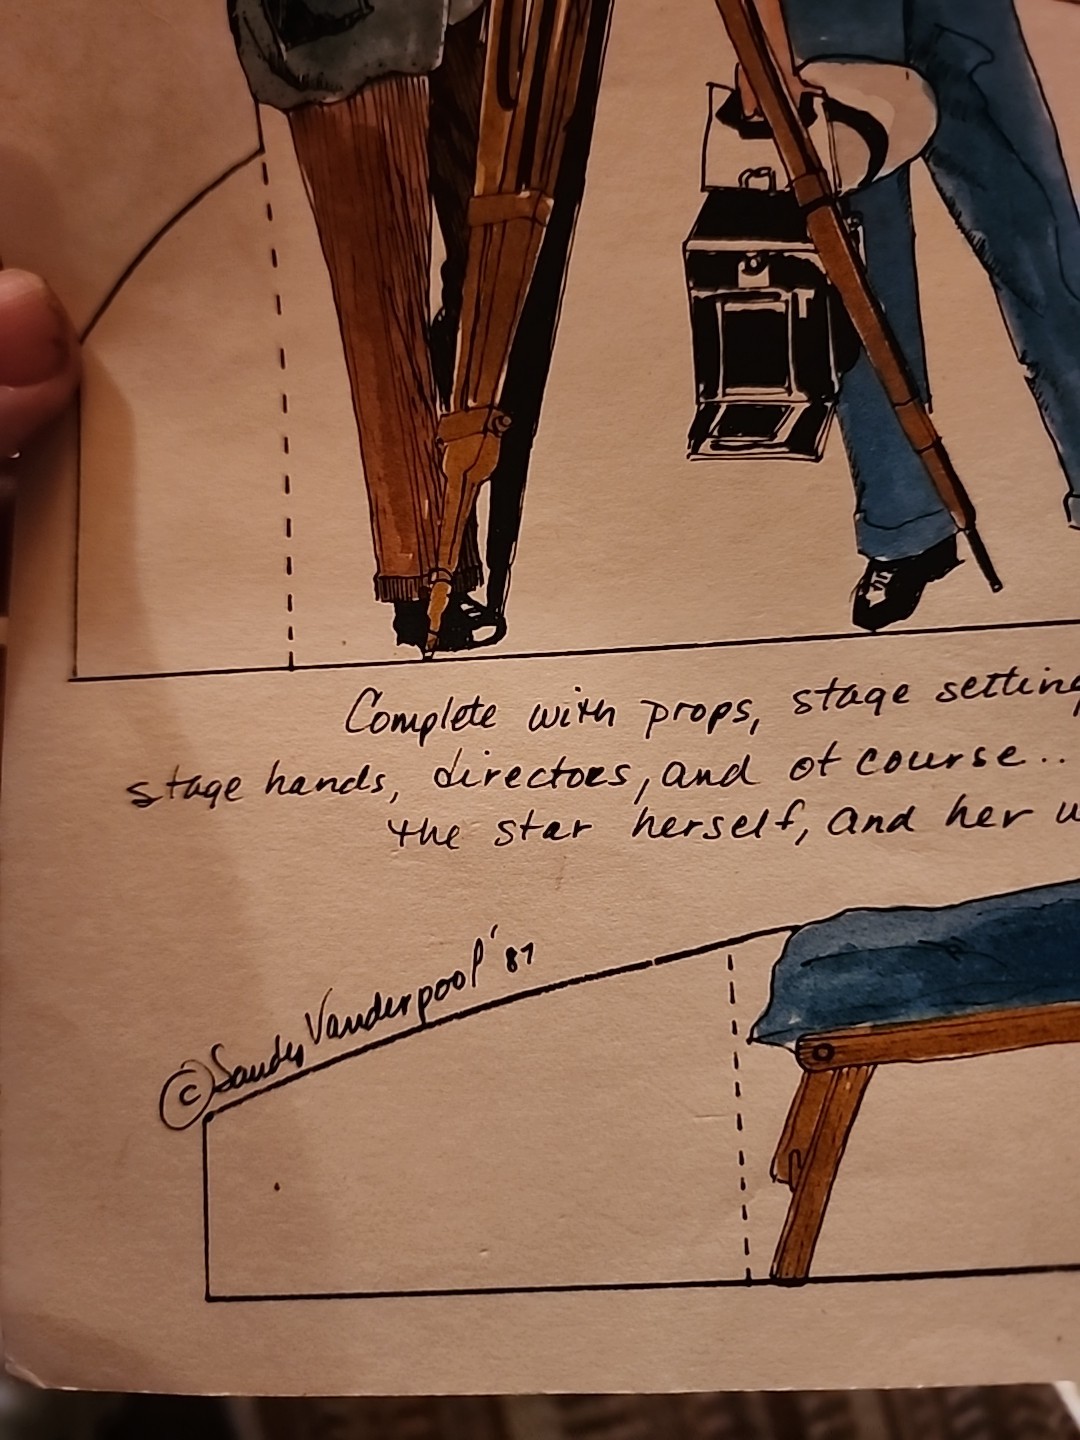 Complete with props, stage setting
stage hands, directors, and of course..
the star herself, and her
© Sandy Vanderpool '87